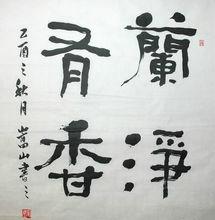 蘭淨
有香
乙酉之秋月嵩山書之